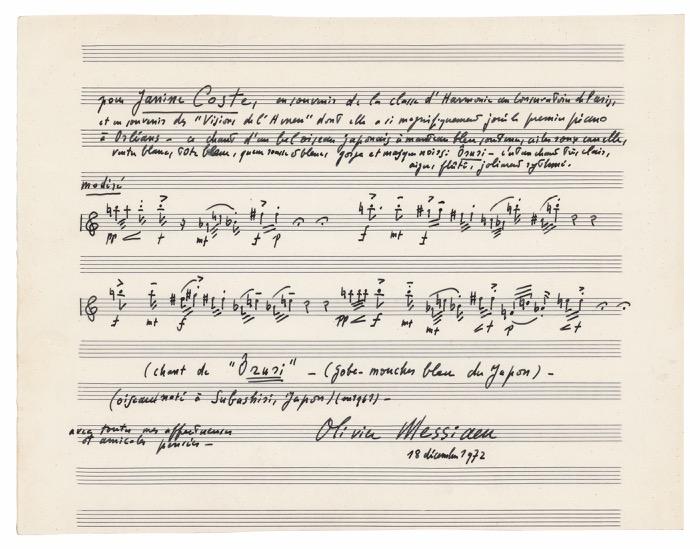 pour Janine Coste, en souvenir de la classe d'Harmonie au Conservatoire de Paris,
et en souvenir des "Visions de l'Amen" dont elle a si magnifiquement joué le premier piano
à Orléans - ce chant d'un bel oiseau japonais à manteau bleu, ailes roux cannelle,
ventre blanc, tête blanc, queue rousse et blanc, gorge et masque noirs: Ôruri - c'est un chant très clair,
aigu, flûté, joliment rythmé.
modéré
pp f mf f p f mf f mf f
f mf f mf f pp f mf f p f
(chant de "Ôruri" - (gobe-mouches bleu du Japon) -
(oiseau noté à Subashiri, Japon)(en 1961) -
avec toutes mes affectueuses
et amicales pensées -
Olivier Messiaen
18 décembre 1972